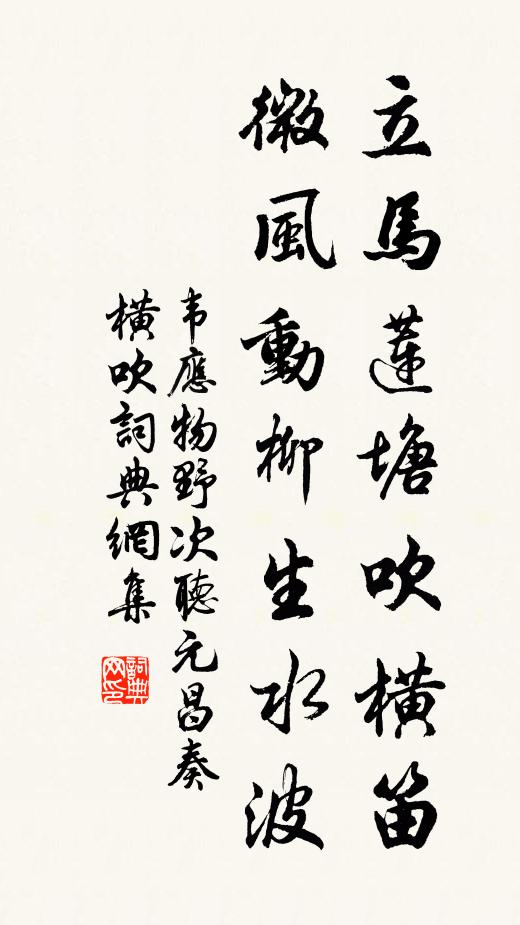 立馬蓮塘吹横笛
微風動柳生水波
韦應物野次聽元昌奏
横吹詞典網集
詞典网印